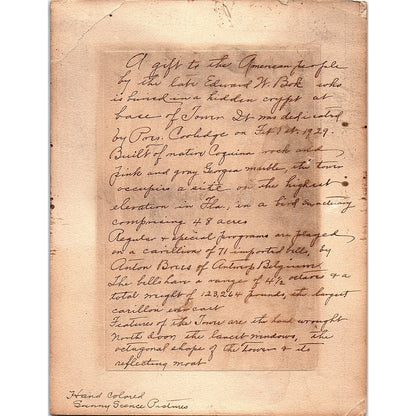 A gift to the American people
by the late Edward W. Bok who
is buried in a hidden crypt at
base of Tower. It was dedicated
by Pres. Coolidge on Feb 1st, 1929.
Built of native Coquina rock and
pink and gray Georgea marble, the tower
occupies a site on the highest
elevation in Fla, in a bird sanctuary
comprising 48 acres
Regular & special programs are played
on a carillon of 71 imported bells, by
Anton Brees of Antwerp Belgium.
The bells have a range of 4½ octaves & a
total weight of 123,264 pounds, the largest
carillon ever cast
Features of the Tower are the hand wrought
North door, the lancet windows, the
octagonal shape of the tower & its
reflecting moat
Hand Colored
Sunny Scenes Pictures